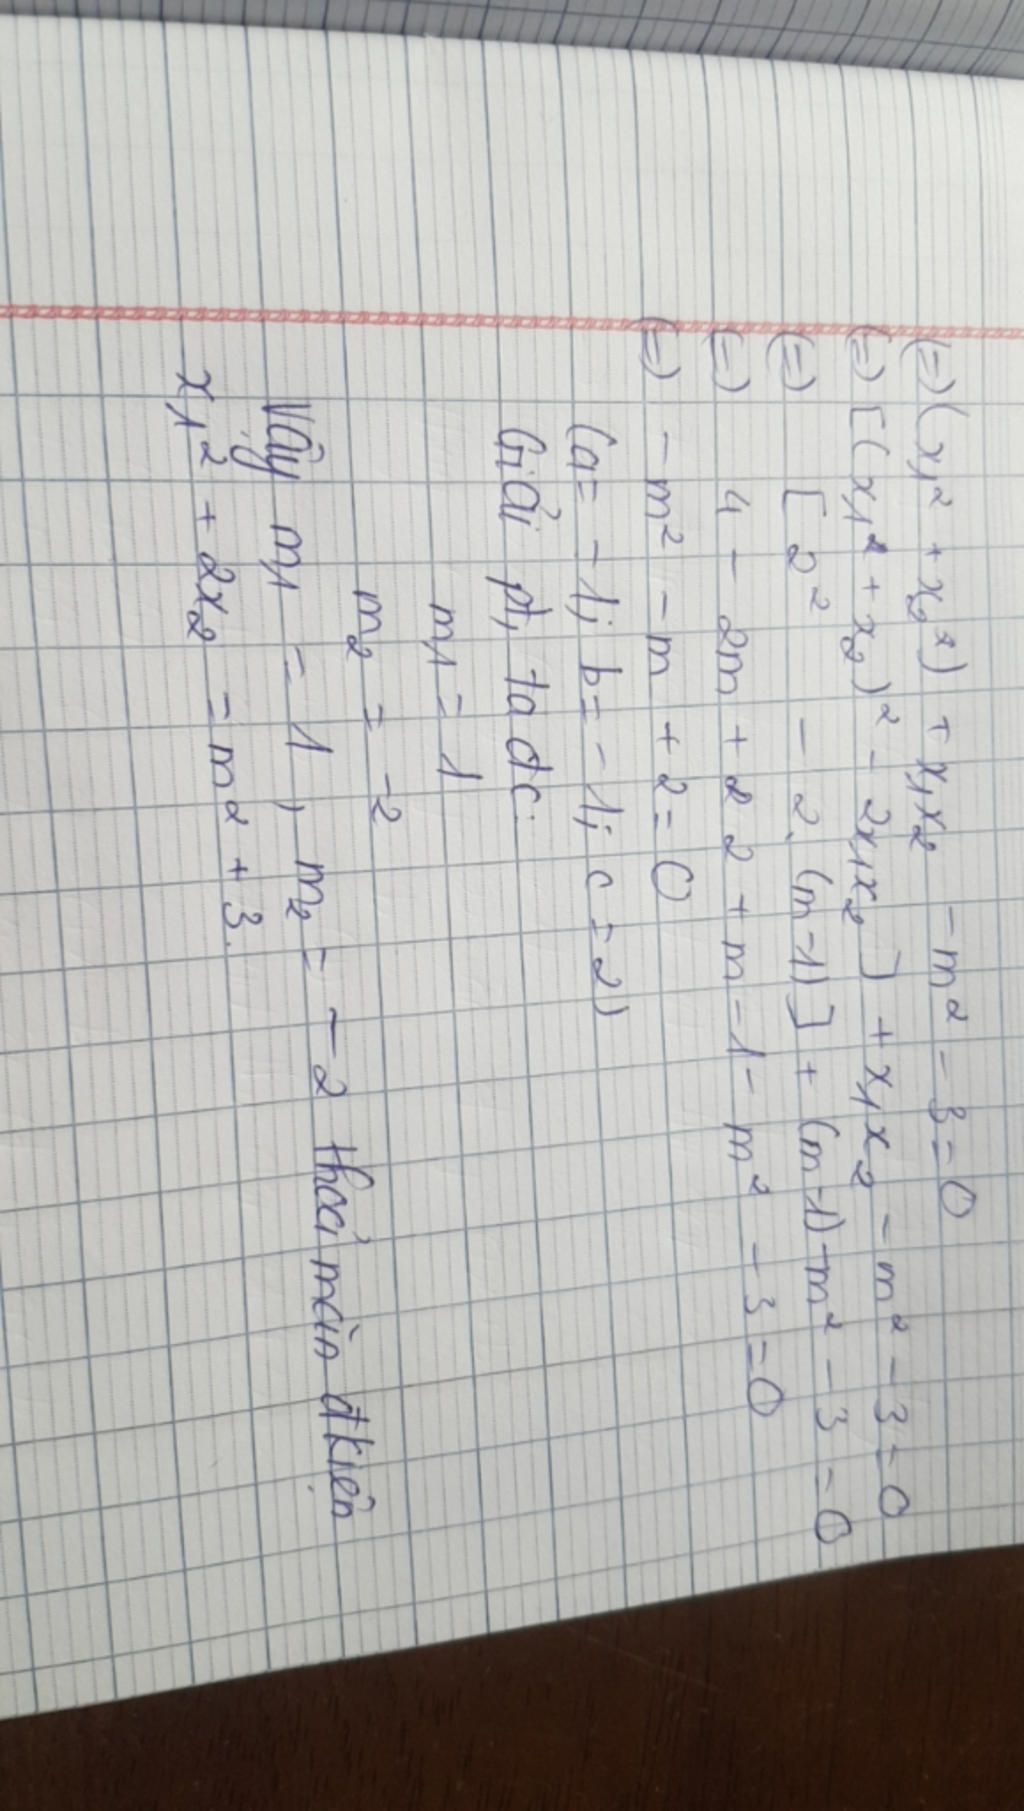 (=) (x₁² + x₂²) + x₁x₂ - m² - 3 = 0
(=) [(x₁² + x₂)² - 2x₁x₂] + x₁x₂ - m² - 3 = 0
(=) [2² - 2.(m-1)] + (m-1) - m² - 3 = 0
(=) 4 - 2m + 2 2 + m - 1 - m² - 3 = 0
(=) - m² - m + 2 = 0
(a = -1; b = -1; c = 2)
Giải pt, ta đc:
m₁ = 1
m₂ = -2
Vậy m₁ = 1, m₂ = -2 thoả mãn đkiện
x₁² + 2x₂ = m² + 3.